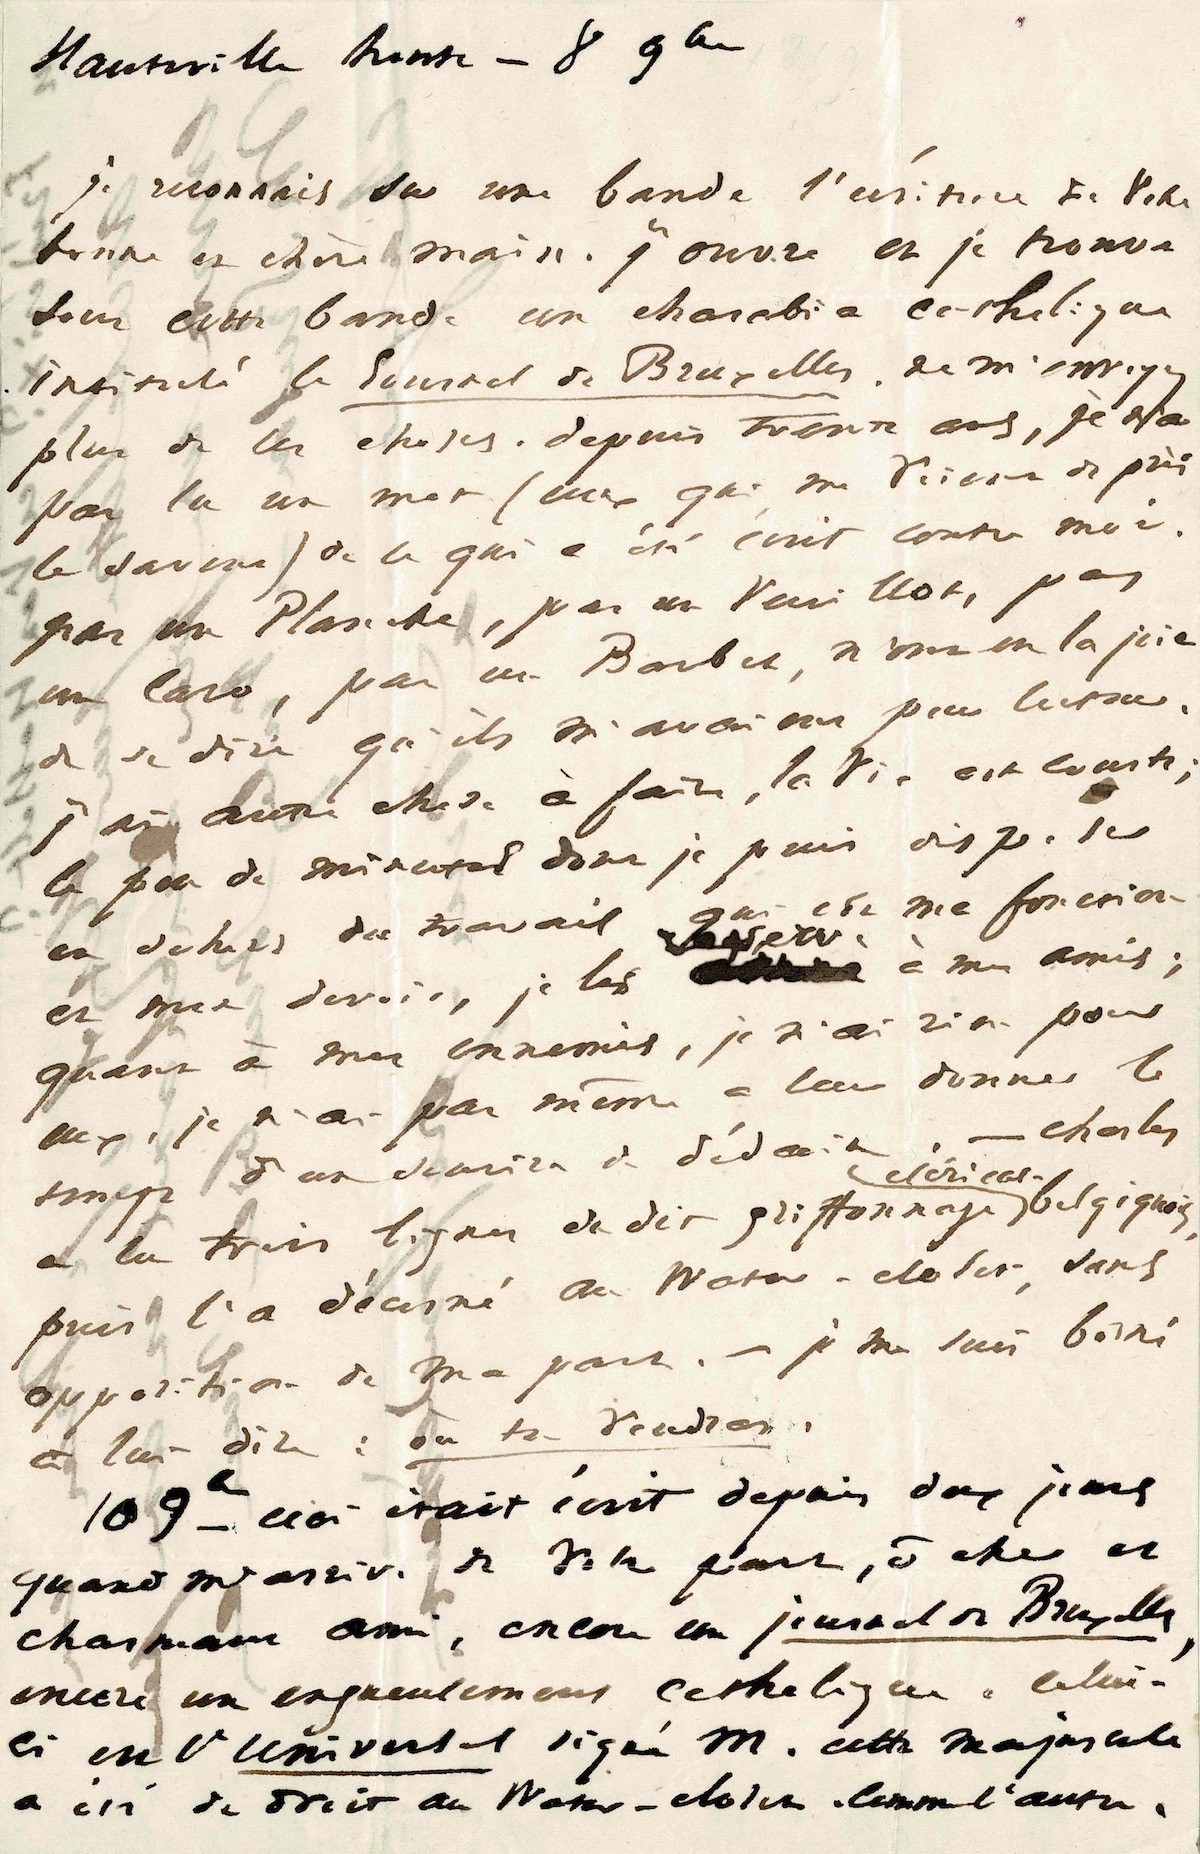 Hauteville house – 8 9bre
je reconnais sur une bande l'écriture de votre
bonne et chère main. j'ouvre et je trouve
sous cette bande un charabia catholique
intitulé le Journal de Bruxelles. ne m'envoyez
plus de ces choses. depuis trente ans, je n'ai
pas lu un mot (ceux qui me voient de près
le savent) de ce qui a été écrit contre moi.
pas un Planche, pas un Veuillot, pas
un Caro, pas un Barbey, n'ont eu la joie
de se dire qu'ils m'avaient pour lecteur.
j'ai autre chose à faire, la vie est courte;
le peu de minutes dont je puis disposer
en dehors du travail qui est ma fonction
et mon devoir, je les réserve à mes amis;
quant à mes ennemis, je n'ai rien pour
eux, je n'ai pas même à leur donner le
temps d'un sourire de dédain. — Charles
a lu trois lignes dudit griffonnage clérical belgiquois,
puis l'a décerné au Water-closet, sans
opposition de ma part. — je me suis borné
à lui dire : où tu voudras.
10 9bre – ceci était écrit depuis deux jours
quand m'arrive de votre part, ô cher et
charmant ami, encore un journal de Bruxelles,
encore un engueulement catholique. celui-
ci est l'Universel signé M. cette majuscule
a été de droit au Water-closet comme l'autre.